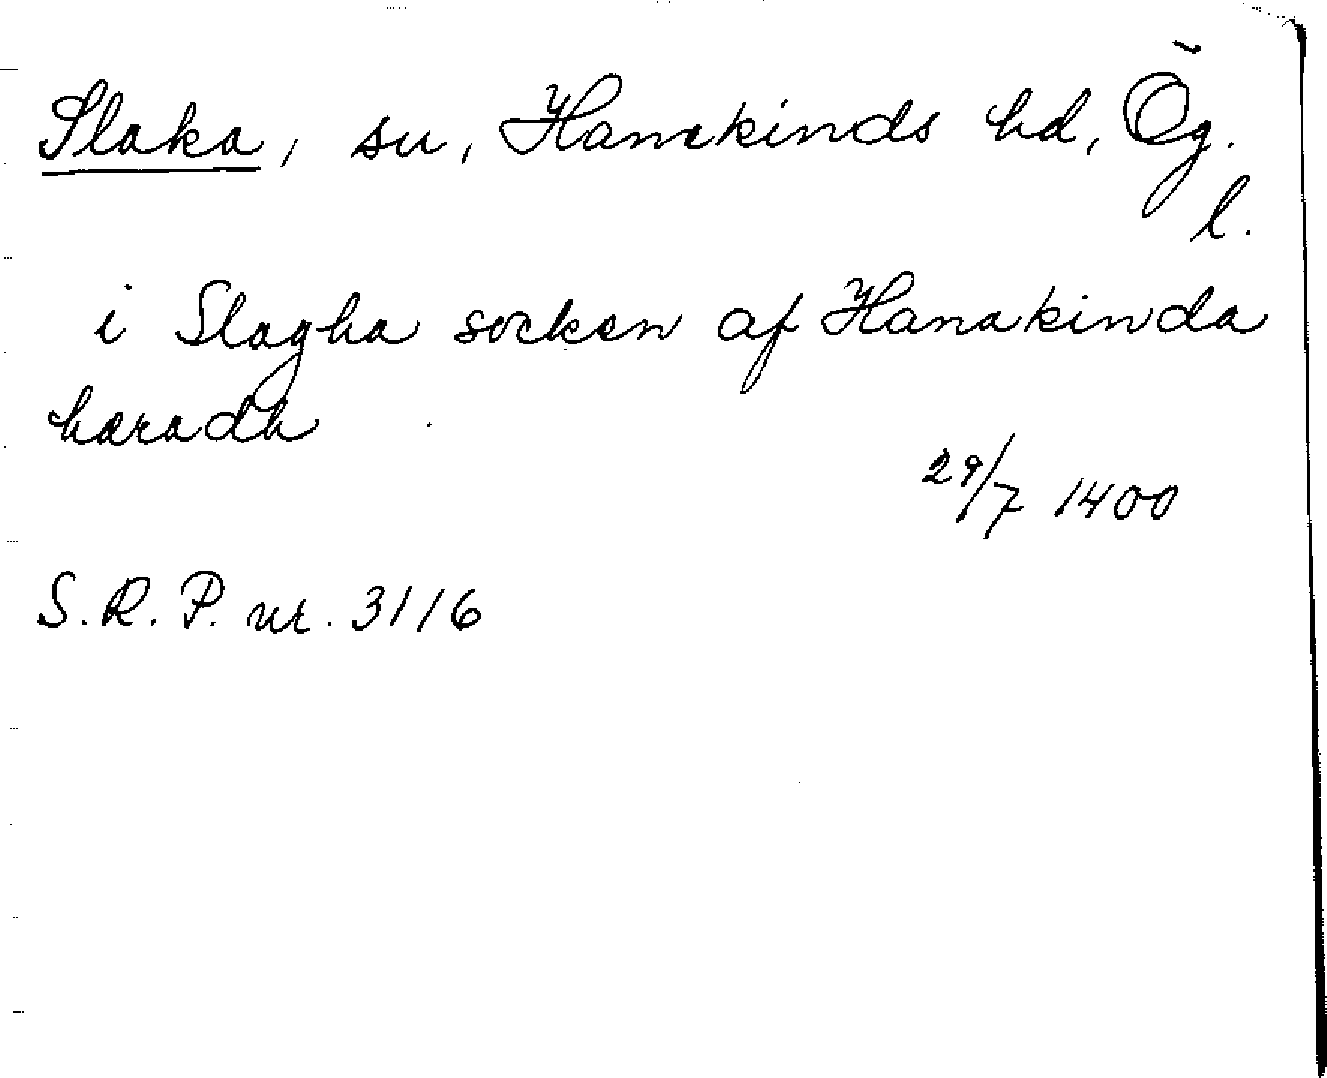 Slaka, sn, Hanekinds hd, Ög.
l.
i Slagha socken af Hanakinda
haradh
29/7 1400
S.R.P. nr. 3116